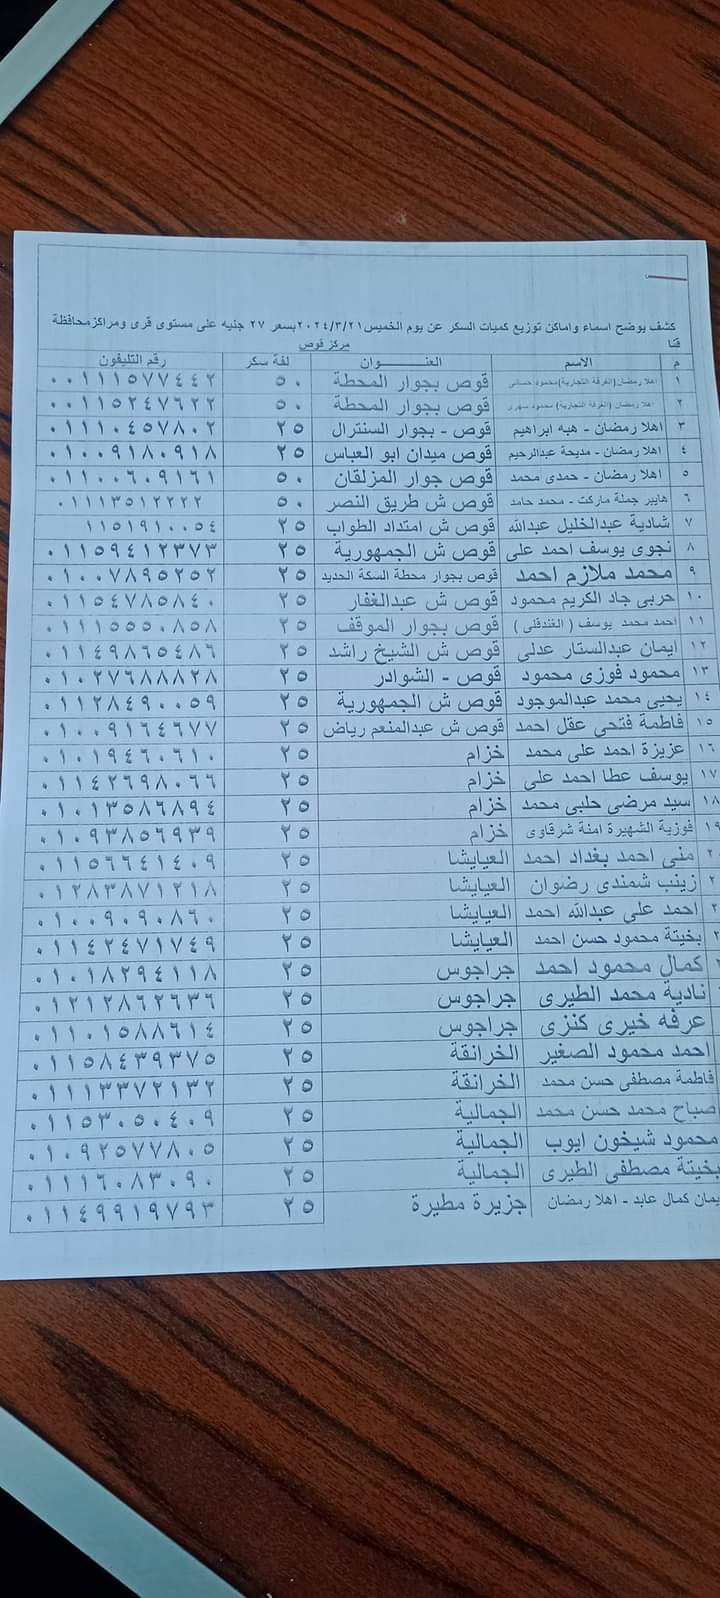 كشف يوضح اسماء واماكن توزيع كميات السكر عن يوم الخميس ٢٠٢٤/٣/٢١ بسعر ٢٧ جنيه على مستوى قرى ومراكز محافظة
قنا
مركز قوص
م الاسم العنـــــوان لفة سكر رقم التليفون
١ اهلا رمضان (الغرفة التجارية) محمود حسانى قوص بجوار المحطة ٥٠ ٠٠١١١٥٧٧٤٤٢
٢ اهلا رمضان (الغرفة التجارية) محمود قوص بجوار المحطة ٥٠ ٠٠١١٥٢٤٧٦٢٢
٣ اهلا رمضان - هبه ابراهيم قوص - بجوار السنترال ٢٥ ٠١١١٠٤٥٧٨٠٢
٤ اهلا رمضان - مديحة عبدالرحيم قوص ميدان ابو العباس ٢٥ ٠١٠٠٩١٨٠٩١٨
٥ اهلا رمضان - حمدى محمد قوص جوار المزلقان ٥٠ ٠١١٠٠٦٠٩١٦١
٦ هايبر جملة ماركت - محمد حامد قوص ش طريق النصر ٥٠ ٠١١١٣٥١٢٢٢٢
٧ شادية عبدالخليل عبدالله قوص ش امتداد الطواب ٢٥ ١١٥١٩١٠٠٥٤
٨ نجوى يوسف احمد على قوص ش الجمهورية ٢٥ ٠١١٥٩٤١٢٣٧٣
٩ محمد ملازم احمد قوص بجوار محطة السكة الحديد ٢٥ ٠١٠٠٧٨٩٥٢٥٢
١٠ حربى جاد الكريم محمود قوص ش عبدالغفار ٢٥ ٠١١٥٤٧٨٥٨٤٠
١١ احمد محمد يوسف ( الغندقلى ) قوص بجوار الموقف ٢٥ ٠١١١٥٥٥٠٨٥٨
١٢ ايمان عبدالستار عدلى قوص ش الشيخ راشد ٢٥ ٠١١٤٩٨٦٥٤٨٦
١٣ محمود فوزى محمود قوص - الشوادر ٢٥ ٠١٠٢٧٦٨٨٨٢٨
١٤ يحيى محمد عبدالموجود قوص ش الجمهورية ٢٥ ٠١١٢٨٤٩٠٠٥٩
١٥ فاطمة فتحى عقل احمد قوص ش عبدالمنعم رياض ٢٥ ٠١٠٠٩١٦٤٦٧٧
١٦ عزيزة احمد على محمد خزام ٢٥ ٠١٠١٩٤٦٠٦١٠
١٧ يوسف عطا احمد على خزام ٢٥ ٠١١٤٢٦٩٨٠٦٦
١٨ سيد مرضى حلبى محمد خزام ٢٥ ٠١٠١٣٥٨٦٨٩٤
١٩ فوزية الشهيرة امنة شرقاوى خزام ٢٥ ٠١٠٩٣٨٥٦٩٣٩
٢ منى احمد بغداد احمد العيايشا ٢٥ ٠١١٥٦٦٤١٤٠٩
٢ زينب شمندى رضوان العيايشا ٢٥ ٠١٢٨٣٨٧١٢١٨
٢ احمد على عبدالله احمد العيايشا ٢٥ ٠١٠٠٩٠٩٠٨٦٠
٢ بخيتة محمود حسن احمد العيايشا ٢٥ ٠١١٤٢٤٧١٧٤٩
كمال محمود احمد جراجوس ٢٥ ٠١٠١٨٢٩٤١١٨
نادية محمد الطيرى جراجوس ٢٥ ٠١٢١٢٨٦٢٦٣٦
عرفه خيرى كنزى جراجوس ٢٥ ٠١١٠١٥٨٨٦١٤
احمد محمود الصغير الخرانقة ٢٥ ٠١١٥٨٤٣٩٣٧٥
فاطمة مصطفى حسن محمد الخرانقة ٢٥ ٠١١١٣٣٧٢١٣٢
صباح محمد حسن محمد الجمالية ٢٥ ٠١١٥٣٠٥٠٤٠٩
محمود شيخون ايوب الجمالية ٢٥ ٠١٠٩٢٥٧٧٨٠٥
بخيتة مصطفى الطيرى الجمالية ٢٥ ٠١١١٦٠٨٣٠٩٠
يمان كمال عابد - اهلا رمضان جزيرة مطيرة ٢٥ ٠١١٤٩٩١٩٧٩٣